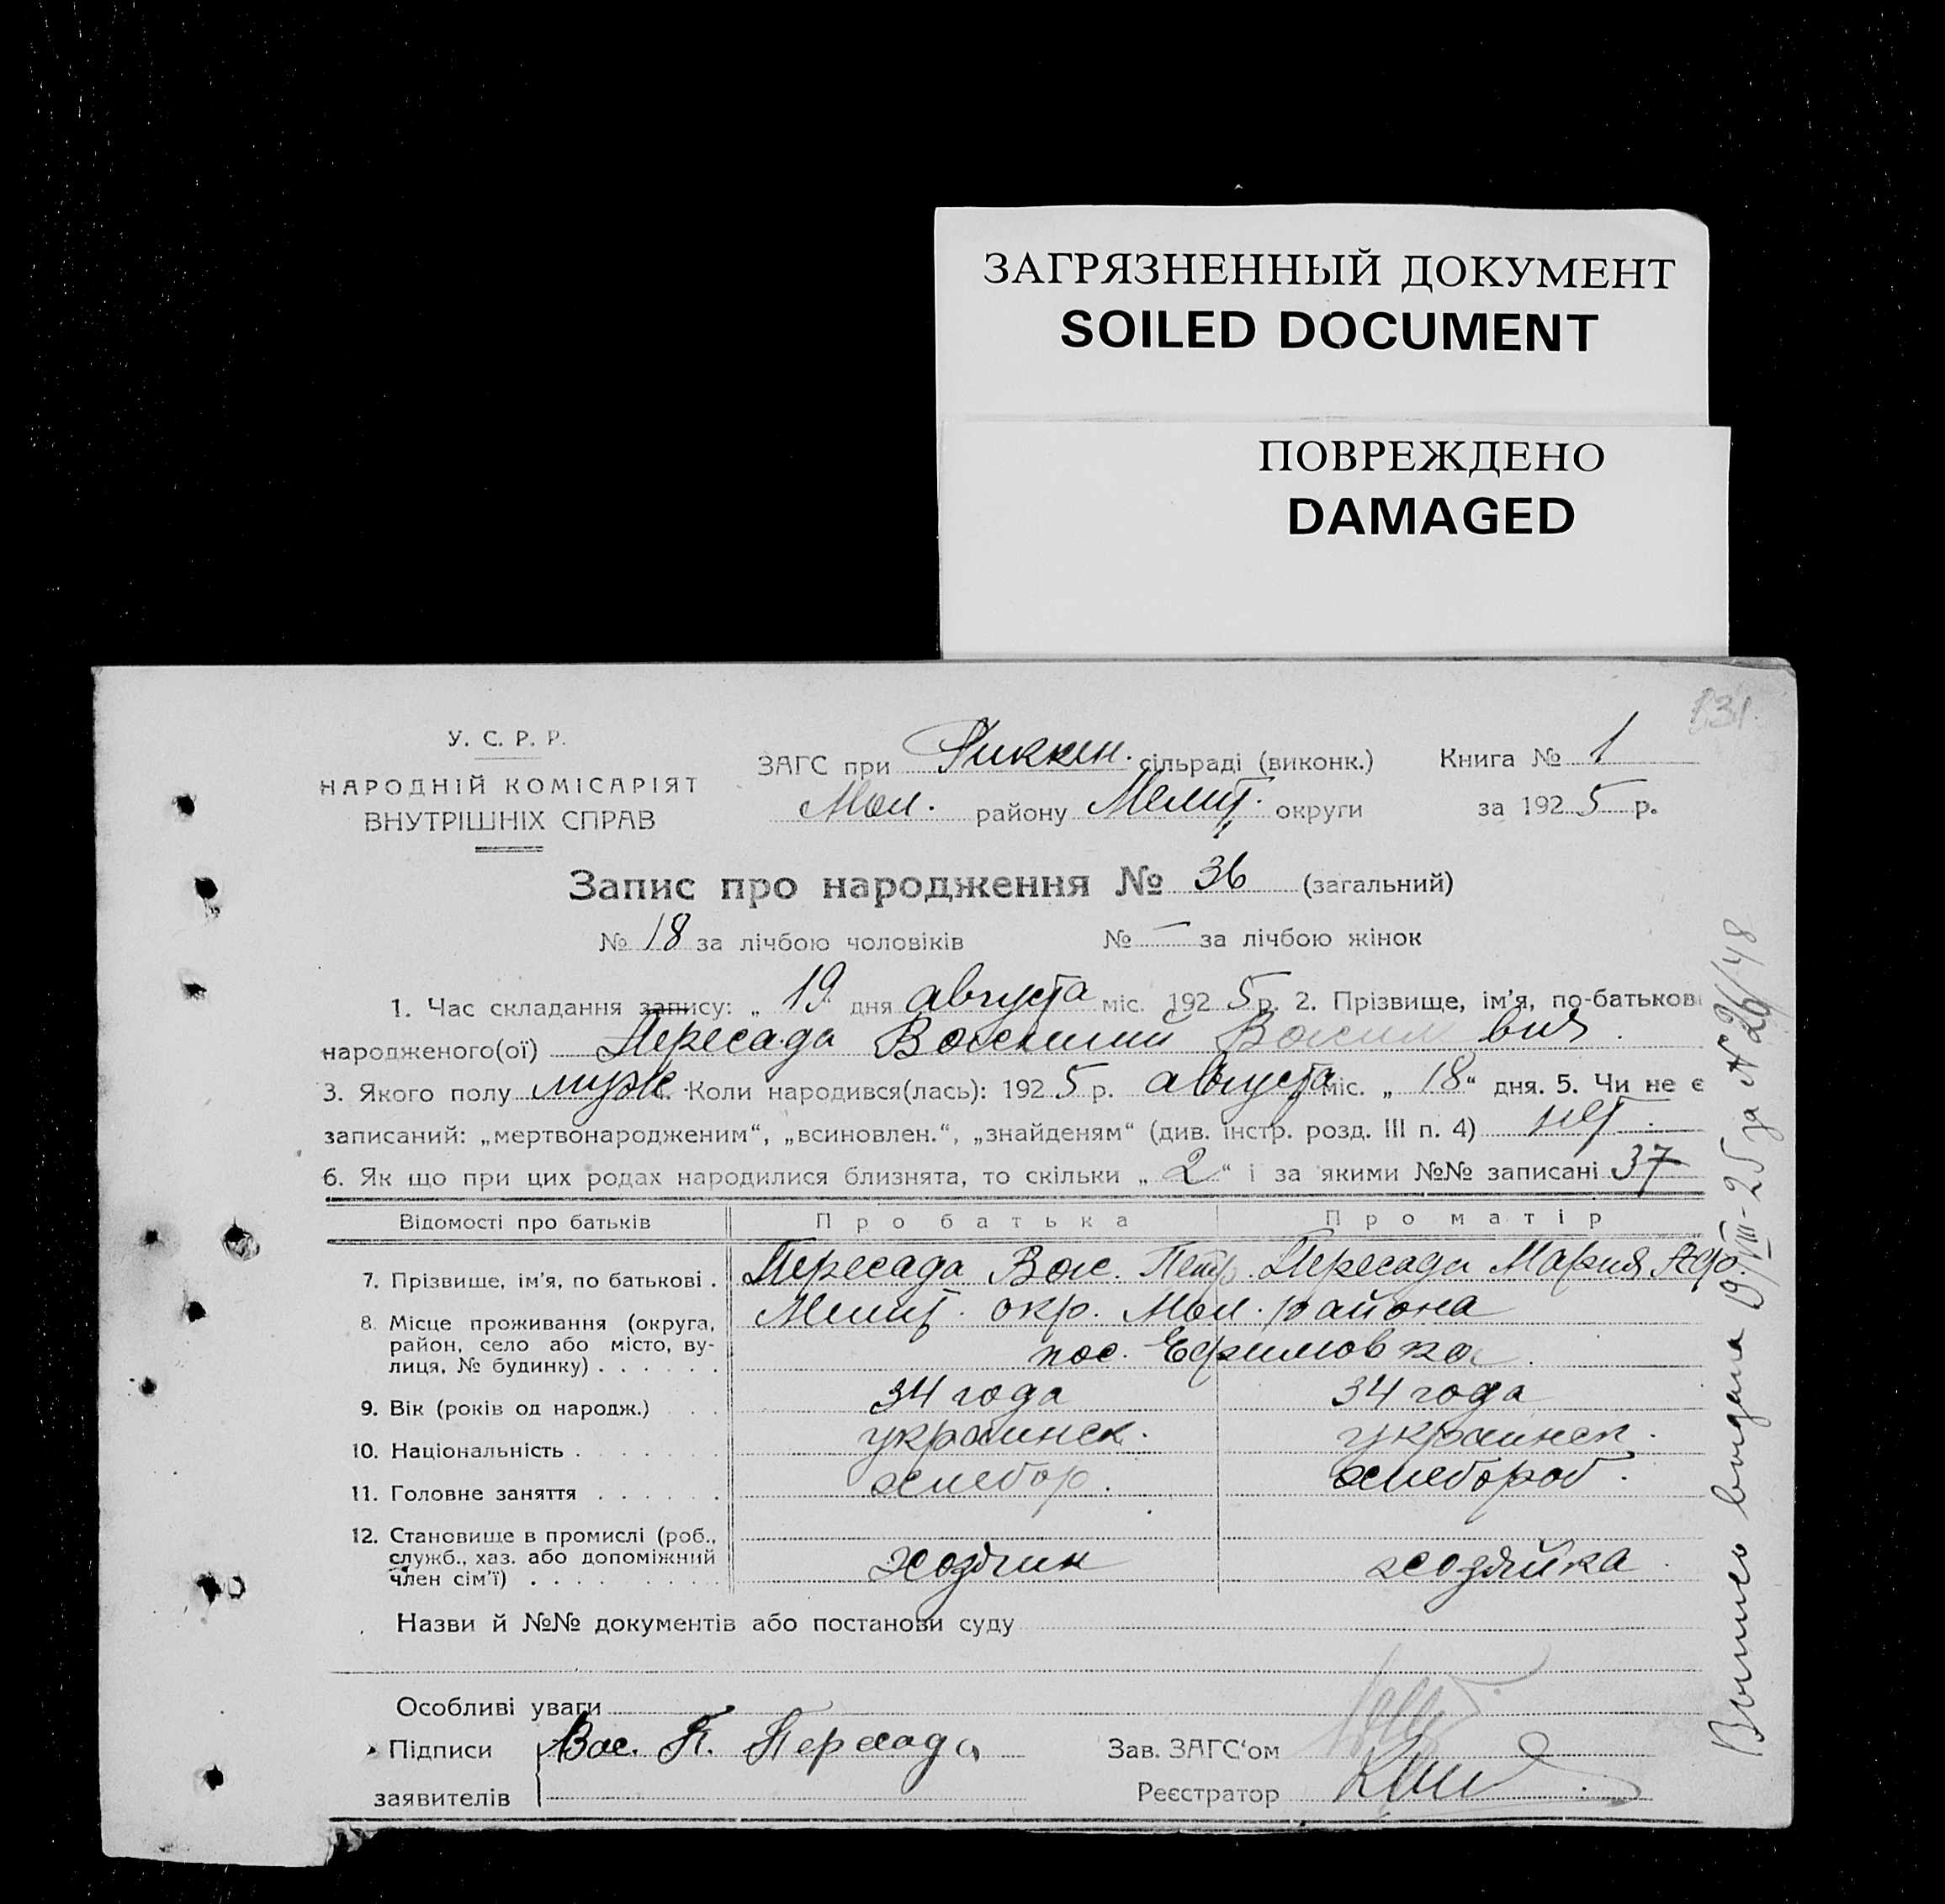 ЗАГРЯЗНЕННЫЙ ДОКУМЕНТ
SOILED DOCUMENT
ПОВРЕЖДЕНО
DAMAGED
131.
У. С. Р. Р.
НАРОДНІЙ КОМІСАРІЯТ
ВНУТРІШНІХ СПРАВ
ЗАГС при Риккен. сільраді (виконк.) Книга № 1
Мол. району Мелит. округи за 1925 р.
Запис про народження № 36 (загальний)
№ 18 за лічбою чоловіків № — за лічбою жінок
1. Час складання запису: „ 19 дня августа міс. 1925 р. 2. Прізвище, ім’я, по-батькові
народженого(ої) Пересада Василий Васил вич.
3. Якого полу муж. Коли народився(лась): 1925 р. августа міс. „ 18 “ дня. 5. Чи не є
записаний: „мертвонародженим“, „всиновлен.“, „знайденям“ (див. інстр. розд. III п. 4) нет.
6. Як що при цих родах народилися близнята, то скільки „ 2 “ і за якими №№ записані 37
Відомості про батьків Про батька Про матір
7. Прізвище, ім’я, по батькові . Пересада Вас. Петр. Пересада Мария Афо.
8. Місце проживання (округа, Мелит. окр. Мол. района
район, село або місто, ву-
лиця, № будинку) . . . . . . пос. Ефимовка.
9. Вік (років од народж.) . . . 34 года 34 года
10. Національність . . . . . . . украинск. украинск.
11. Головне заняття . . . . . . хлебор. хлебороб.
12. Становище в промислі (роб.,
служб., хаз. або допоміжний
член сім’ї) . . . . . . . . . хозяин хозяйка.
Назви й №№ документів або постанови суду
Особливі уваги
Підписи Вас. П. Пересада Зав. ЗАГС‘ом
заявителів Реєстратор
Выпись выдана 19/VIII-25 за № 26/48